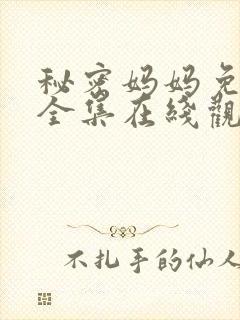 秘密妈妈免
全集在綫觀
不扎手的仙人